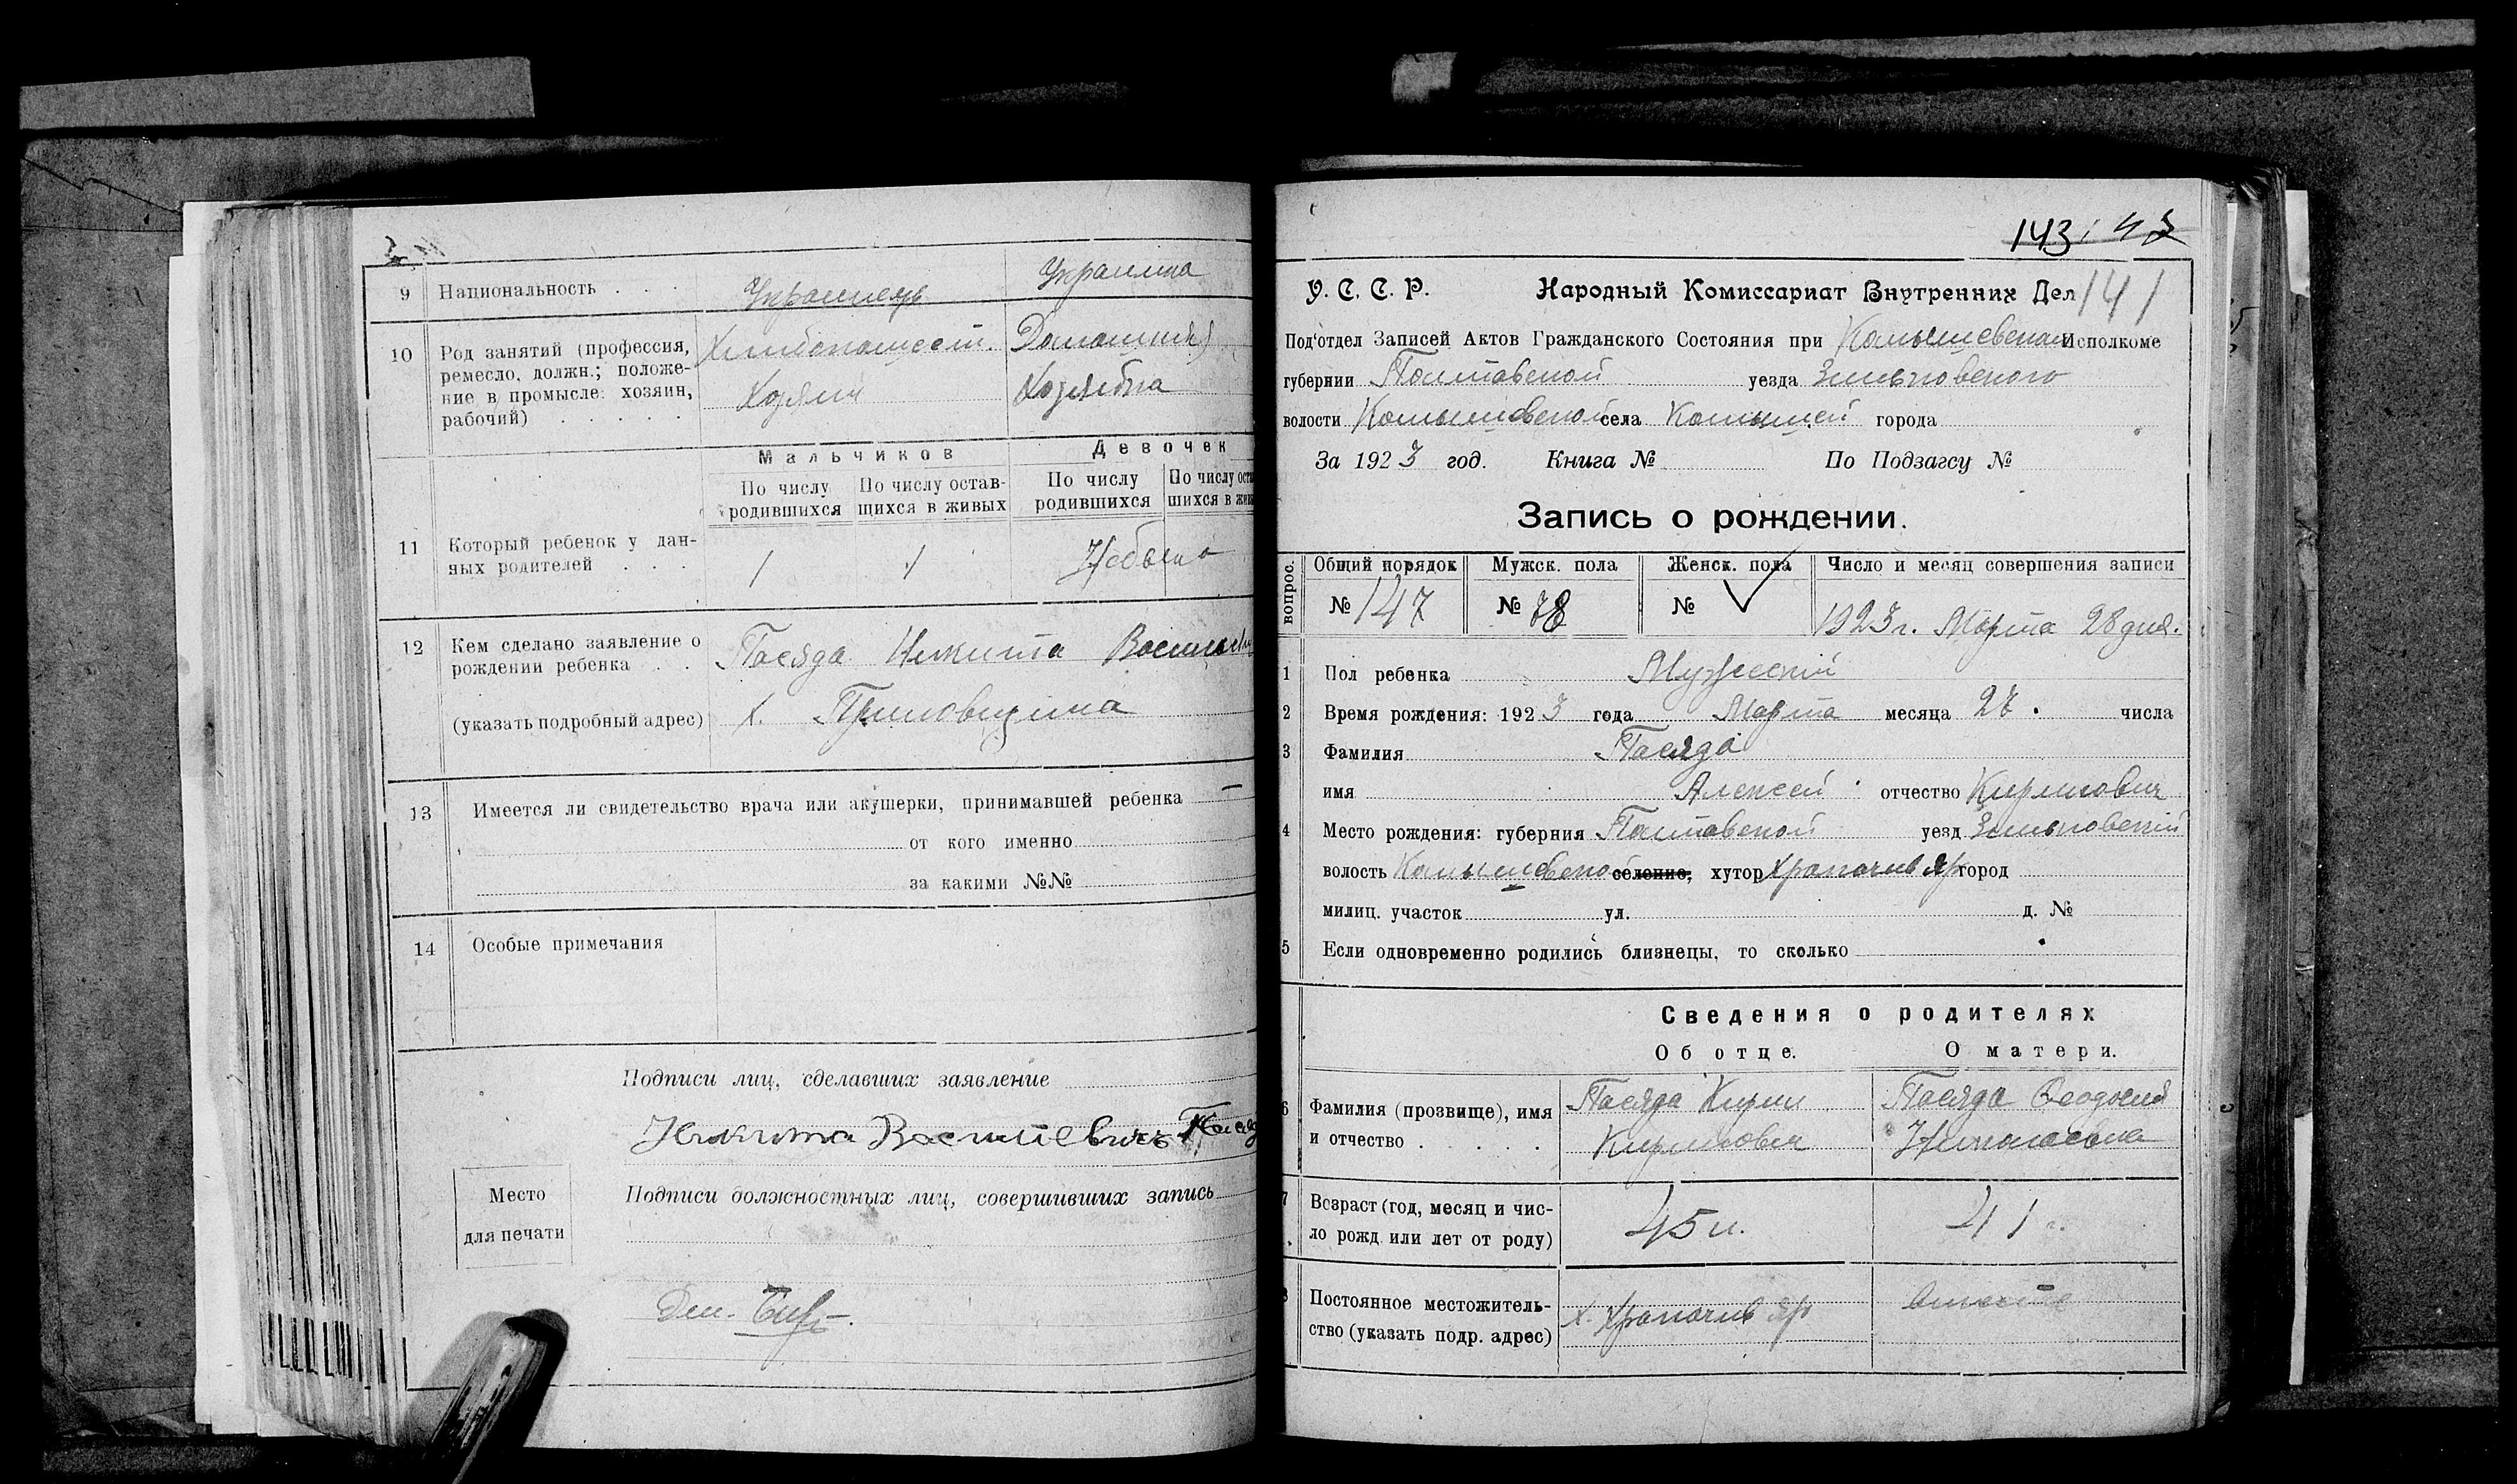 9 Национальность . . . Украинець Украинка
10 Род занятий (профессия, ремесло, должн.; положение в промысле: хозяин, рабочий) . . . . .
Хлебопашест. Домашняя
Хозяин Хозяйка
Мальчиков Девочек
По числу родившихся По числу оставщихся в живых По числу родившихся По числу
шихся в
11 Который ребенок у данных родителей . . . 1 1 Небыло
12 Кем сделано заявление о
рождении ребенка . . Пасяда Никита
(указать подробный адрес) х.
13 Имеется ли свидетельство врача или акушерки, принимавшей ребенка —
от кого именно
за какими №№
14 Особые примечания
Подписи лиц, сделавших заявление
Никита Васильевичь
Место
для печати
Подписи должностных лиц, совершивших запись
143
141
У. С. С. Р. Народный Комиссариат Внутренних Дел
Под'отдел Записей Актов Гражданского Состояния при Исполкоме
губернии Полтавской уезда Зиньковского
волости Комышевской села Комышей города
За 1923 год. Книга № По Подзагсу №
Запись о рождении.
вопрос. Общий порядок Мужск. пола Женск. пола Число и месяц совершения записи
№ 147 № 78 № 1923 г. Марта 28 дня.
1 Пол ребенка Мужеский
2 Время рождения: 1923 года Марта месяца 27. числа
3 Фамилия Пасяда
имя Алексей отчество Кирилович
4 Место рождения: губерния Полтавской уезд Зиньковский
волость Комышевской селение, хутор Яр город
милиц. участок ул. д. №
5 Если одновременно родились близнецы, то сколько
Сведения о родителях
Об отце. О матери.
6 Фамилия (прозвище), имя Пасяда Кирил Пасяда Феодосия
и отчество . . . . . Кирилович
7 Возраст (год, месяц и чис-
ло рожд или лет от роду) 45 л. 41 г.
8 Постоянное местожитель-
ство (указать подр. адрес) х. Яр вместе